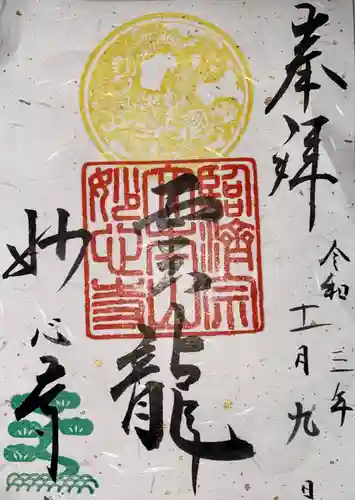 奉拝
令和三年
十一月九日
雲龍
妙心寺
臨濟宗
大本山
妙心寺